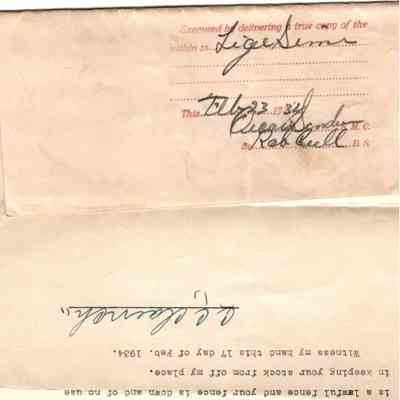 Executed by delivering a true copy of the
within to Lige Sims
This Feb 23 1934
M. C.
By Rob D. S.
is a lawful fence and your fence is down and of no use
in keeping your stock from off my place.
Witness my hand this 17 day of Feb. 1934.